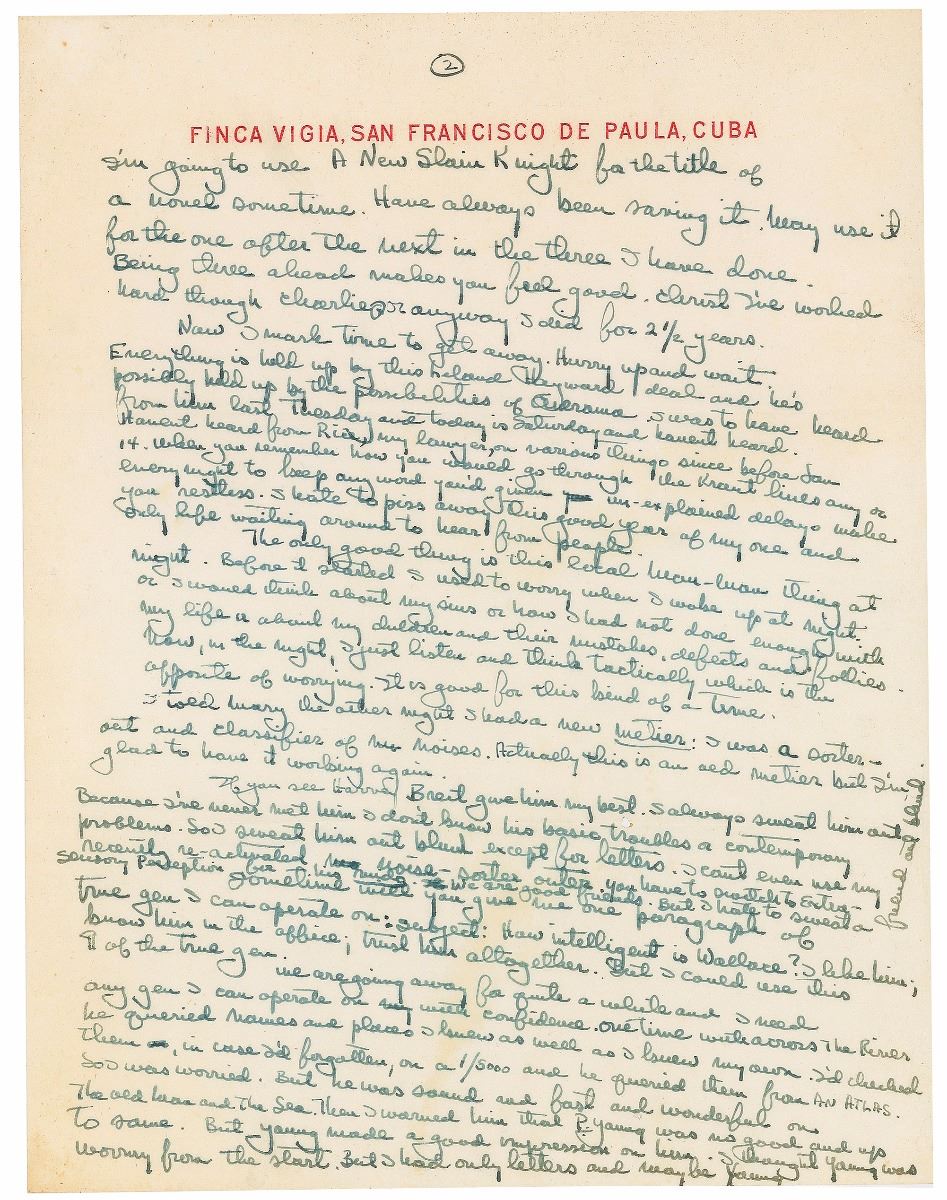 2
FINCA VIGIA, SAN FRANCISCO DE PAULA, CUBA
I'm going to use A New Slain Knight for the title of
a novel sometime. Have always been saving it. May use it
for the one after the next in the three I have done.
Being three ahead makes you feel good. Christ I've worked
hard though Charlie, or anyway I did for 2½ years.
Now I mark time to get away. Hurry up and wait.
Everything is held up by this Leland Hayward deal and he's
possibly held up by the possibilities of Cinerama. I was to have heard
from him last Tuesday and today is Saturday and havent heard.
Havent heard from Rice, my lawyer, on various things since before Jan
14. When you remember how you would go through the Kraut lines any or
every night to keep any word you'd given un-explained delays make
you restless. I hate to piss away this good year of my one and
only life waiting around to hear from people.
The only good thing is this local Mau-Mau thing at
night. Before it started I used to worry when I woke up at night.
or I would think about my sins or how I had not done enough with
my life or about my children and their mistakes, defects and follies.
Now, in the night, I just listen and think tactically which is the
opposite of worrying. It is good for this kind of a time.
I told Mary the other night I had a new metier: I was a sorter-
out and classifier of noises. Actually this is an old metier but I'm
glad to have it working again.
If you see Harvey Breit give him my best. I always sweat him out
Because I've never met him I don't know his basic troubles or contemporary
problems. So I sweat him out blunt except for letters. I cant even use my
recently re-activated noise-sorter outer. you have to switch to Extra-
Sensory Perception for him. We are good friends. But I hate to sweat a
friend out blind.
Sometime you give me one paragraph of
true gen I can operate on: subject: How intelligent is Wallace? I like him;
know him in the office; trust him altogether. But I could use this
¶ of the true gen.
We are going away for quite a while and I need
any gen I can operate on with confidence. one time with across The River
he queried names and places I knew as well as I knew my own. I'd checked
them, in case I'd forgotten, on a 1/5000 and he queried them from AN ATLAS.
So I was worried. But he was sound and fast and wonderful on
The old Man and The Sea. Then I warned him that P. Young was no good and up
to same. But young made a good impression on him. I thought Young was
wormy from the start. But I had only letters and maybe Young